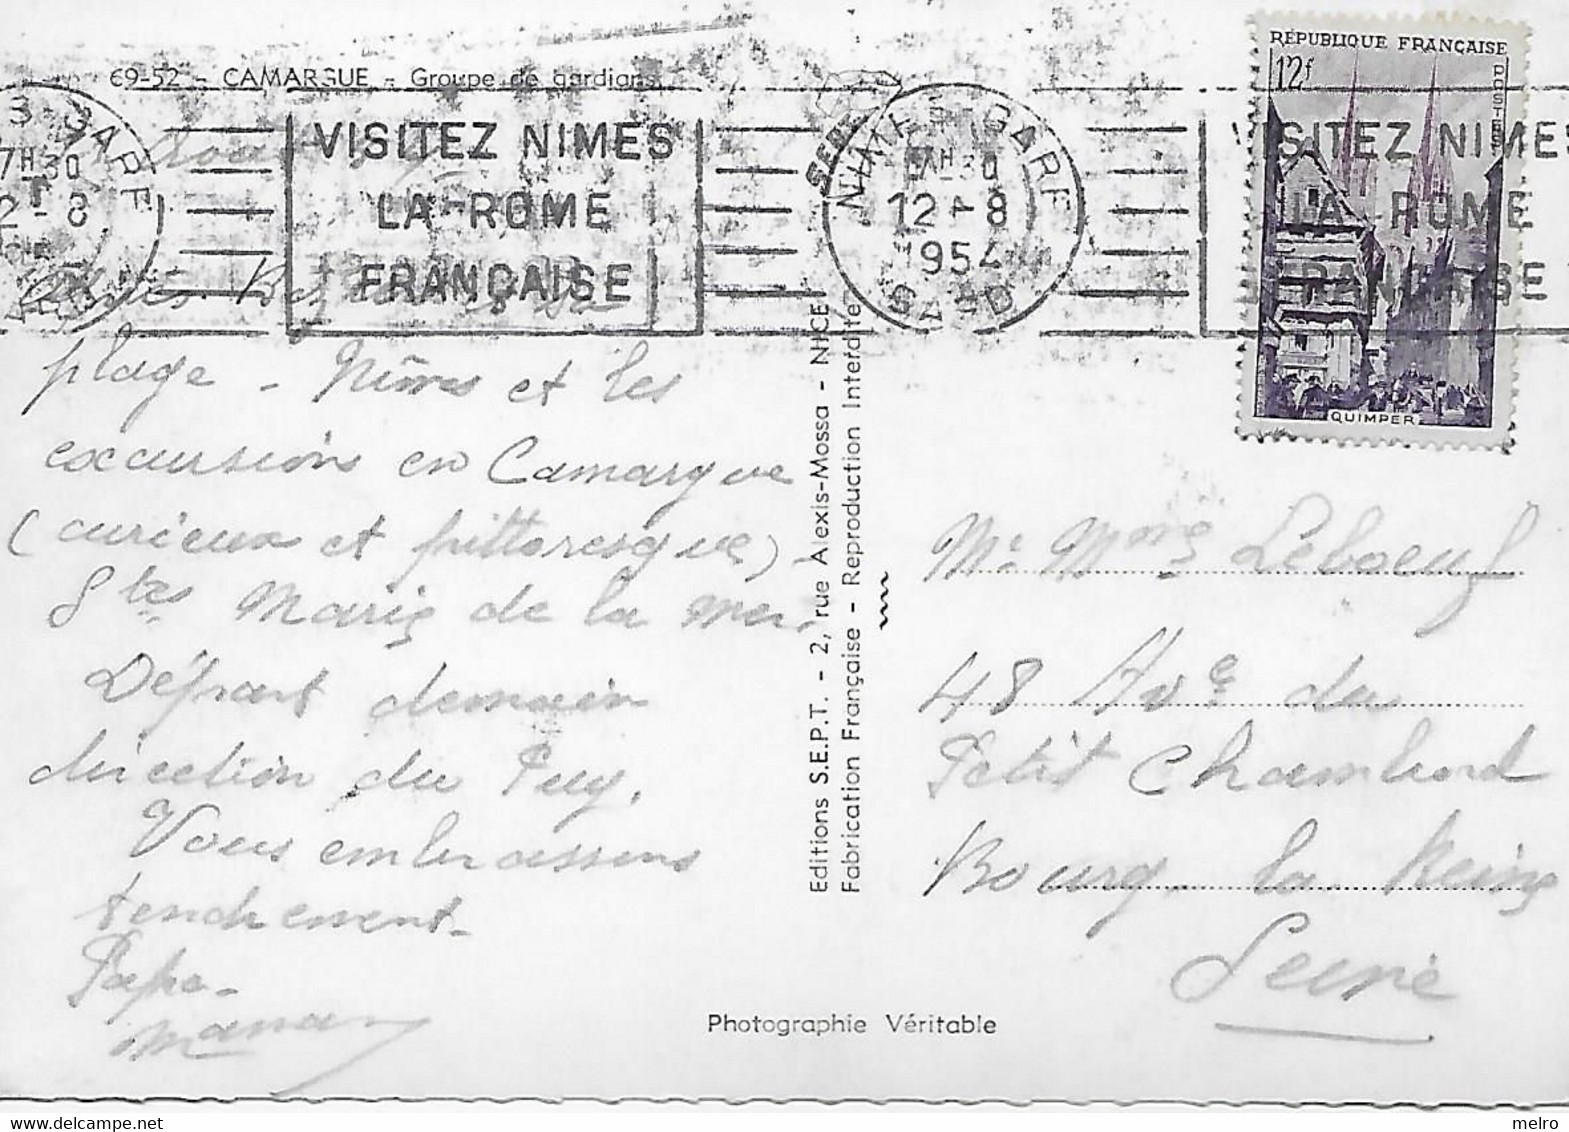 69-52 - CAMARGUE - Groupe de gardians
VISITEZ NIMES
LA ROME
FRANÇAISE
NIMES GARE
12-8
1954
GARD
VISITEZ NIMES
LA ROME
FRANÇAISE
REPUBLIQUE FRANÇAISE
12f
POSTES
QUIMPER
Après Beziers sa
plage - Nîmes et les
excursion en Camargue
(curieux et pittoresque)
Stes Marie de la mer.
Départ demain
direction du Puy.
Vous embrassons
tendrement.
Papa.
Maman
Editions S.E.P.T. - 2, rue Alexis-Mossa - NICE
Fabrication Française - Reproduction Interdite
Mr Mme Leboeuf
48 Ave du
Petit Chambord
Bourg la Reine
Seine
Photographie Véritable
melro